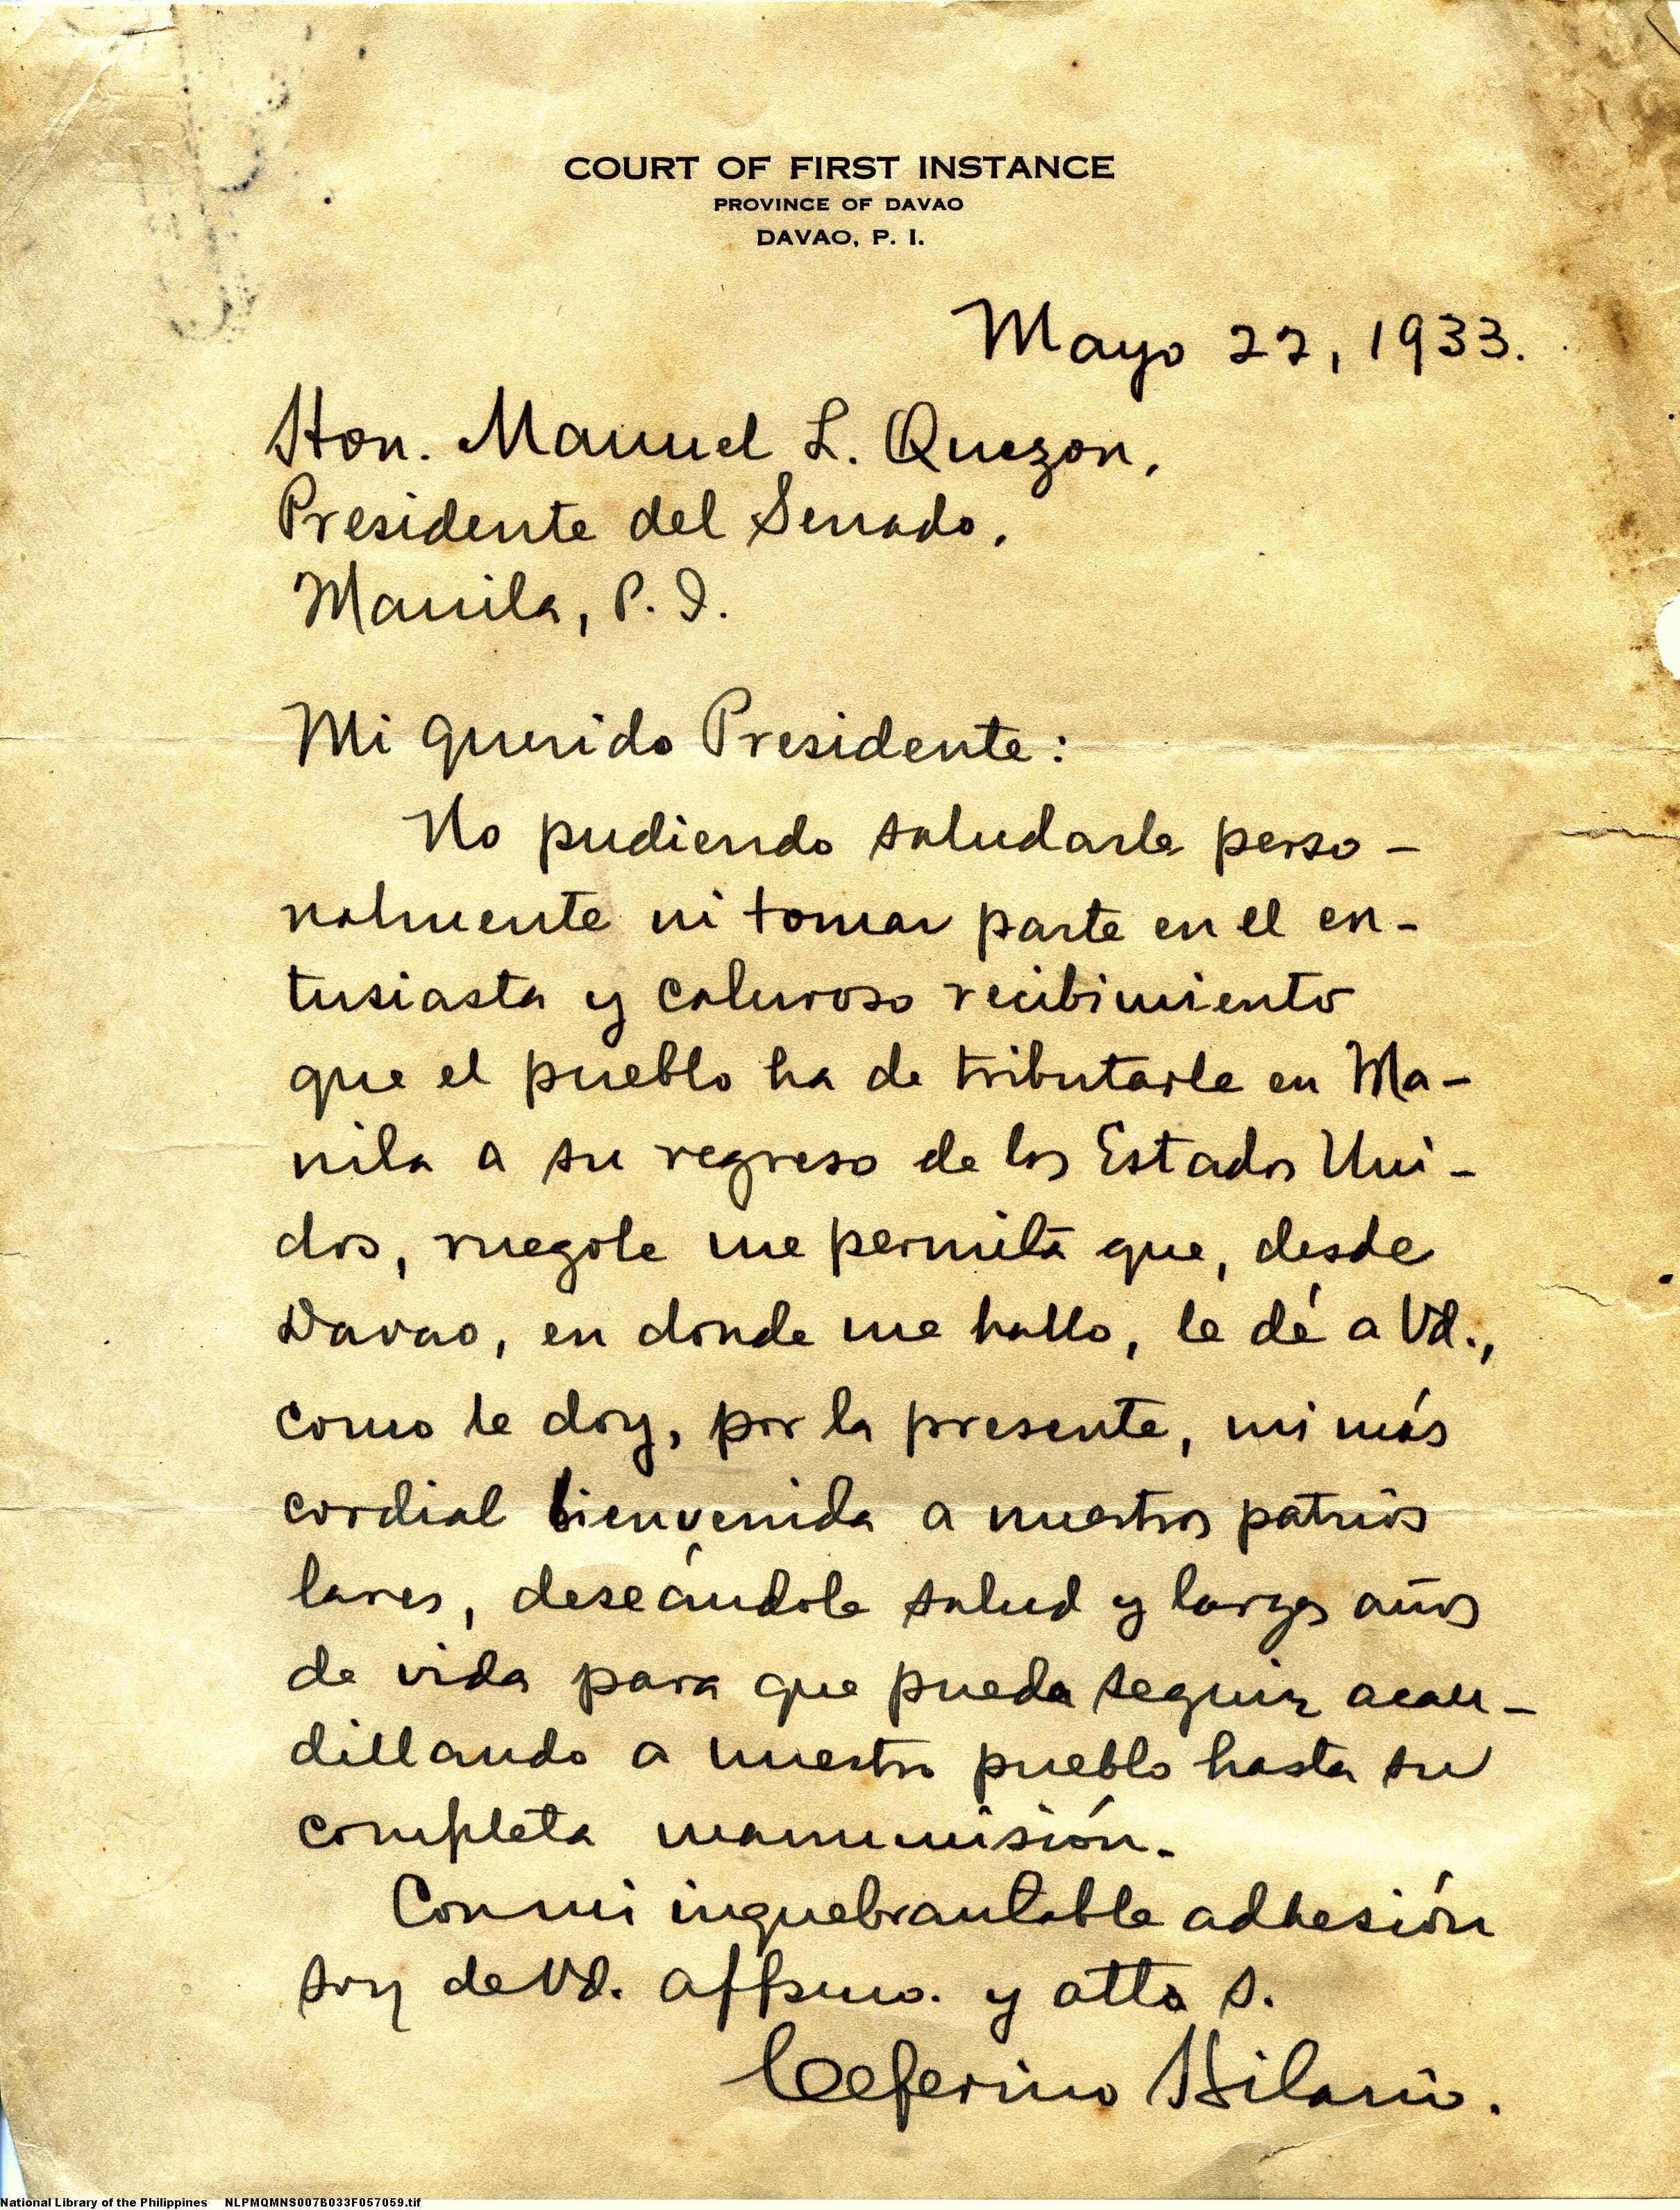 COURT OF FIRST INSTANCE
PROVINCE OF DAVAO
DAVAO, P. I.
Mayo 22, 1933.
Hon. Manuel L. Quezon,
Presidente del Senado,
Manila, P. I.
Mi querido Presidente:
No pudiendo saludarle perso-
nalmente ni tomar parte en el en-
tusiasta y caluroso recibimiento
que el pueblo ha de tributarle en Ma-
nila a su regreso de los Estados Uni-
dos, ruegole me permita que, desde
Davao, en donde me hallo, le dé a Vd.,
como le doy, por la presente, mi más
cordial bienvenida a nuestros patrios
lares, deseándole salud y largos años
de vida para que pueda seguir acau-
dillando a nuestro pueblo hasta su
completa manumisión.
Con mi inquebrantable adhesión
soy de Vd. affsmo. y atto s.
Ceferino Hilario.
National Library of the Philippines NLPMQMNS007B033F057059.tif